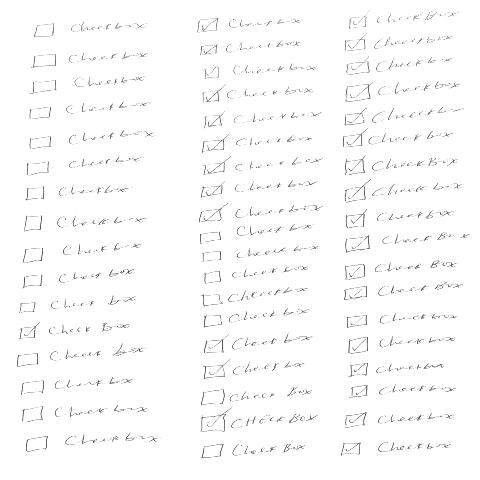 Checkbox
Checkbox
Checkbox
Check box
Check box
Checkbox
Check box
Check box
Check box
Check box
Check box
Check Box
Check box
Check box
Check box
Checkbox
Check box
Check Box
Check box
Check box
Check box
Check box
Check box
Check box
Check box
Check box
Check box
Check box
Checkbox
Check box
Check box
Check box
Check Box
CHECK BOX
Check Box
Check Box
Check box
Check box
Check box
Check box
Check box
Check Box
Check box
Check box
Check Box
Check Box
Check Box
Check box
Check box
Check box
Check box
Check box
Check box